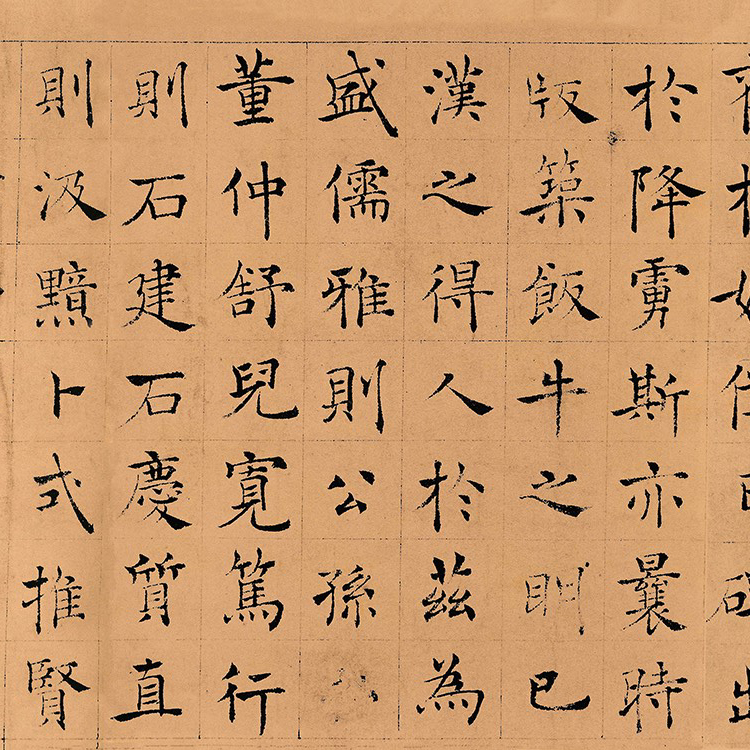 於降虜斯亦曩時
版築飯牛之已
漢之得人於茲為
盛儒雅則公孫
董仲舒兒寬篤行
則石建石慶質直
則汲黯卜式推賢